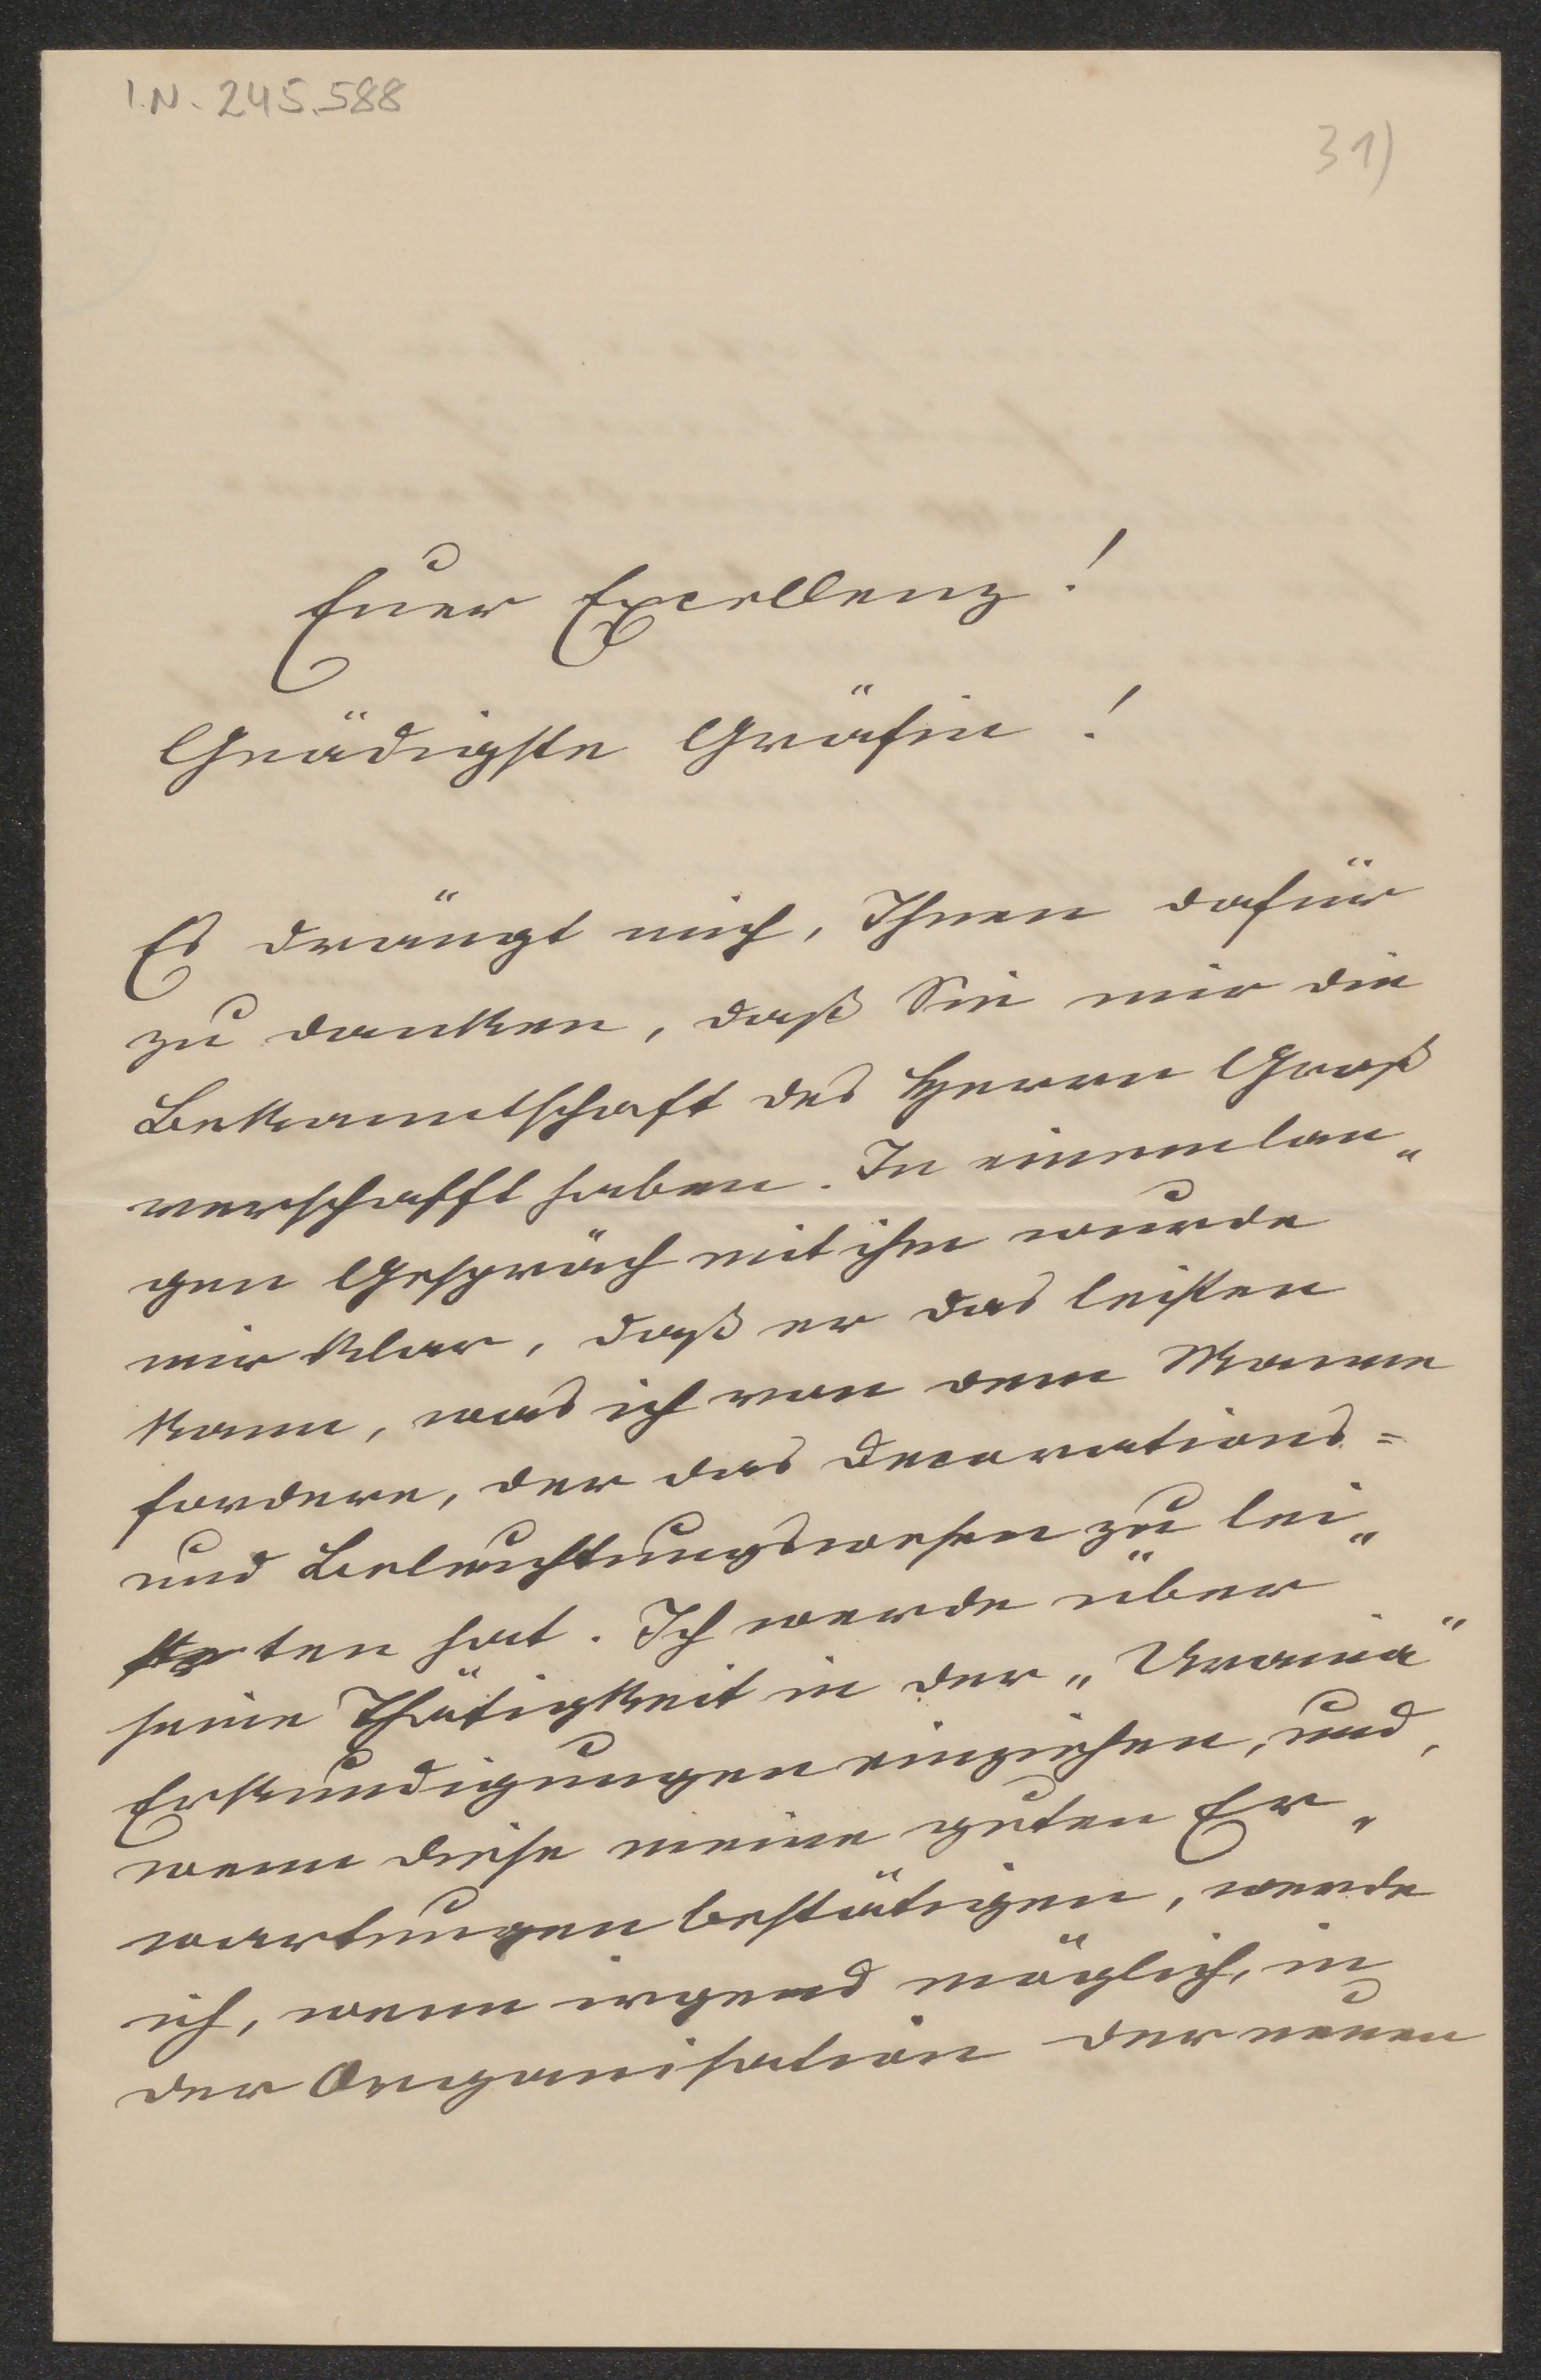 I.N. 245.588
31)
Euer Excellenz!
Gnädigste Gräfin!
Es drängt mich, Ihnen dafür
zu danken, daß Sie mir die
Bekanntschaft des Herrn Groß
verschafft haben. In einem lan„
gen Gespräch mit ihm wurde
mir klar, daß er das leisten
kann, was ich von dem Manne
fordere, der das Decorations=
und Beleuchtungswesen zu lei„
ten hat. Ich werde über
seine Thätigkeit in der „Urania“
Erkundigungen einziehen, und,
wenn diese meine guten Er„
wartungen bestätigen, werde
ich, wenn irgend möglich, in
der Organisation der neuen